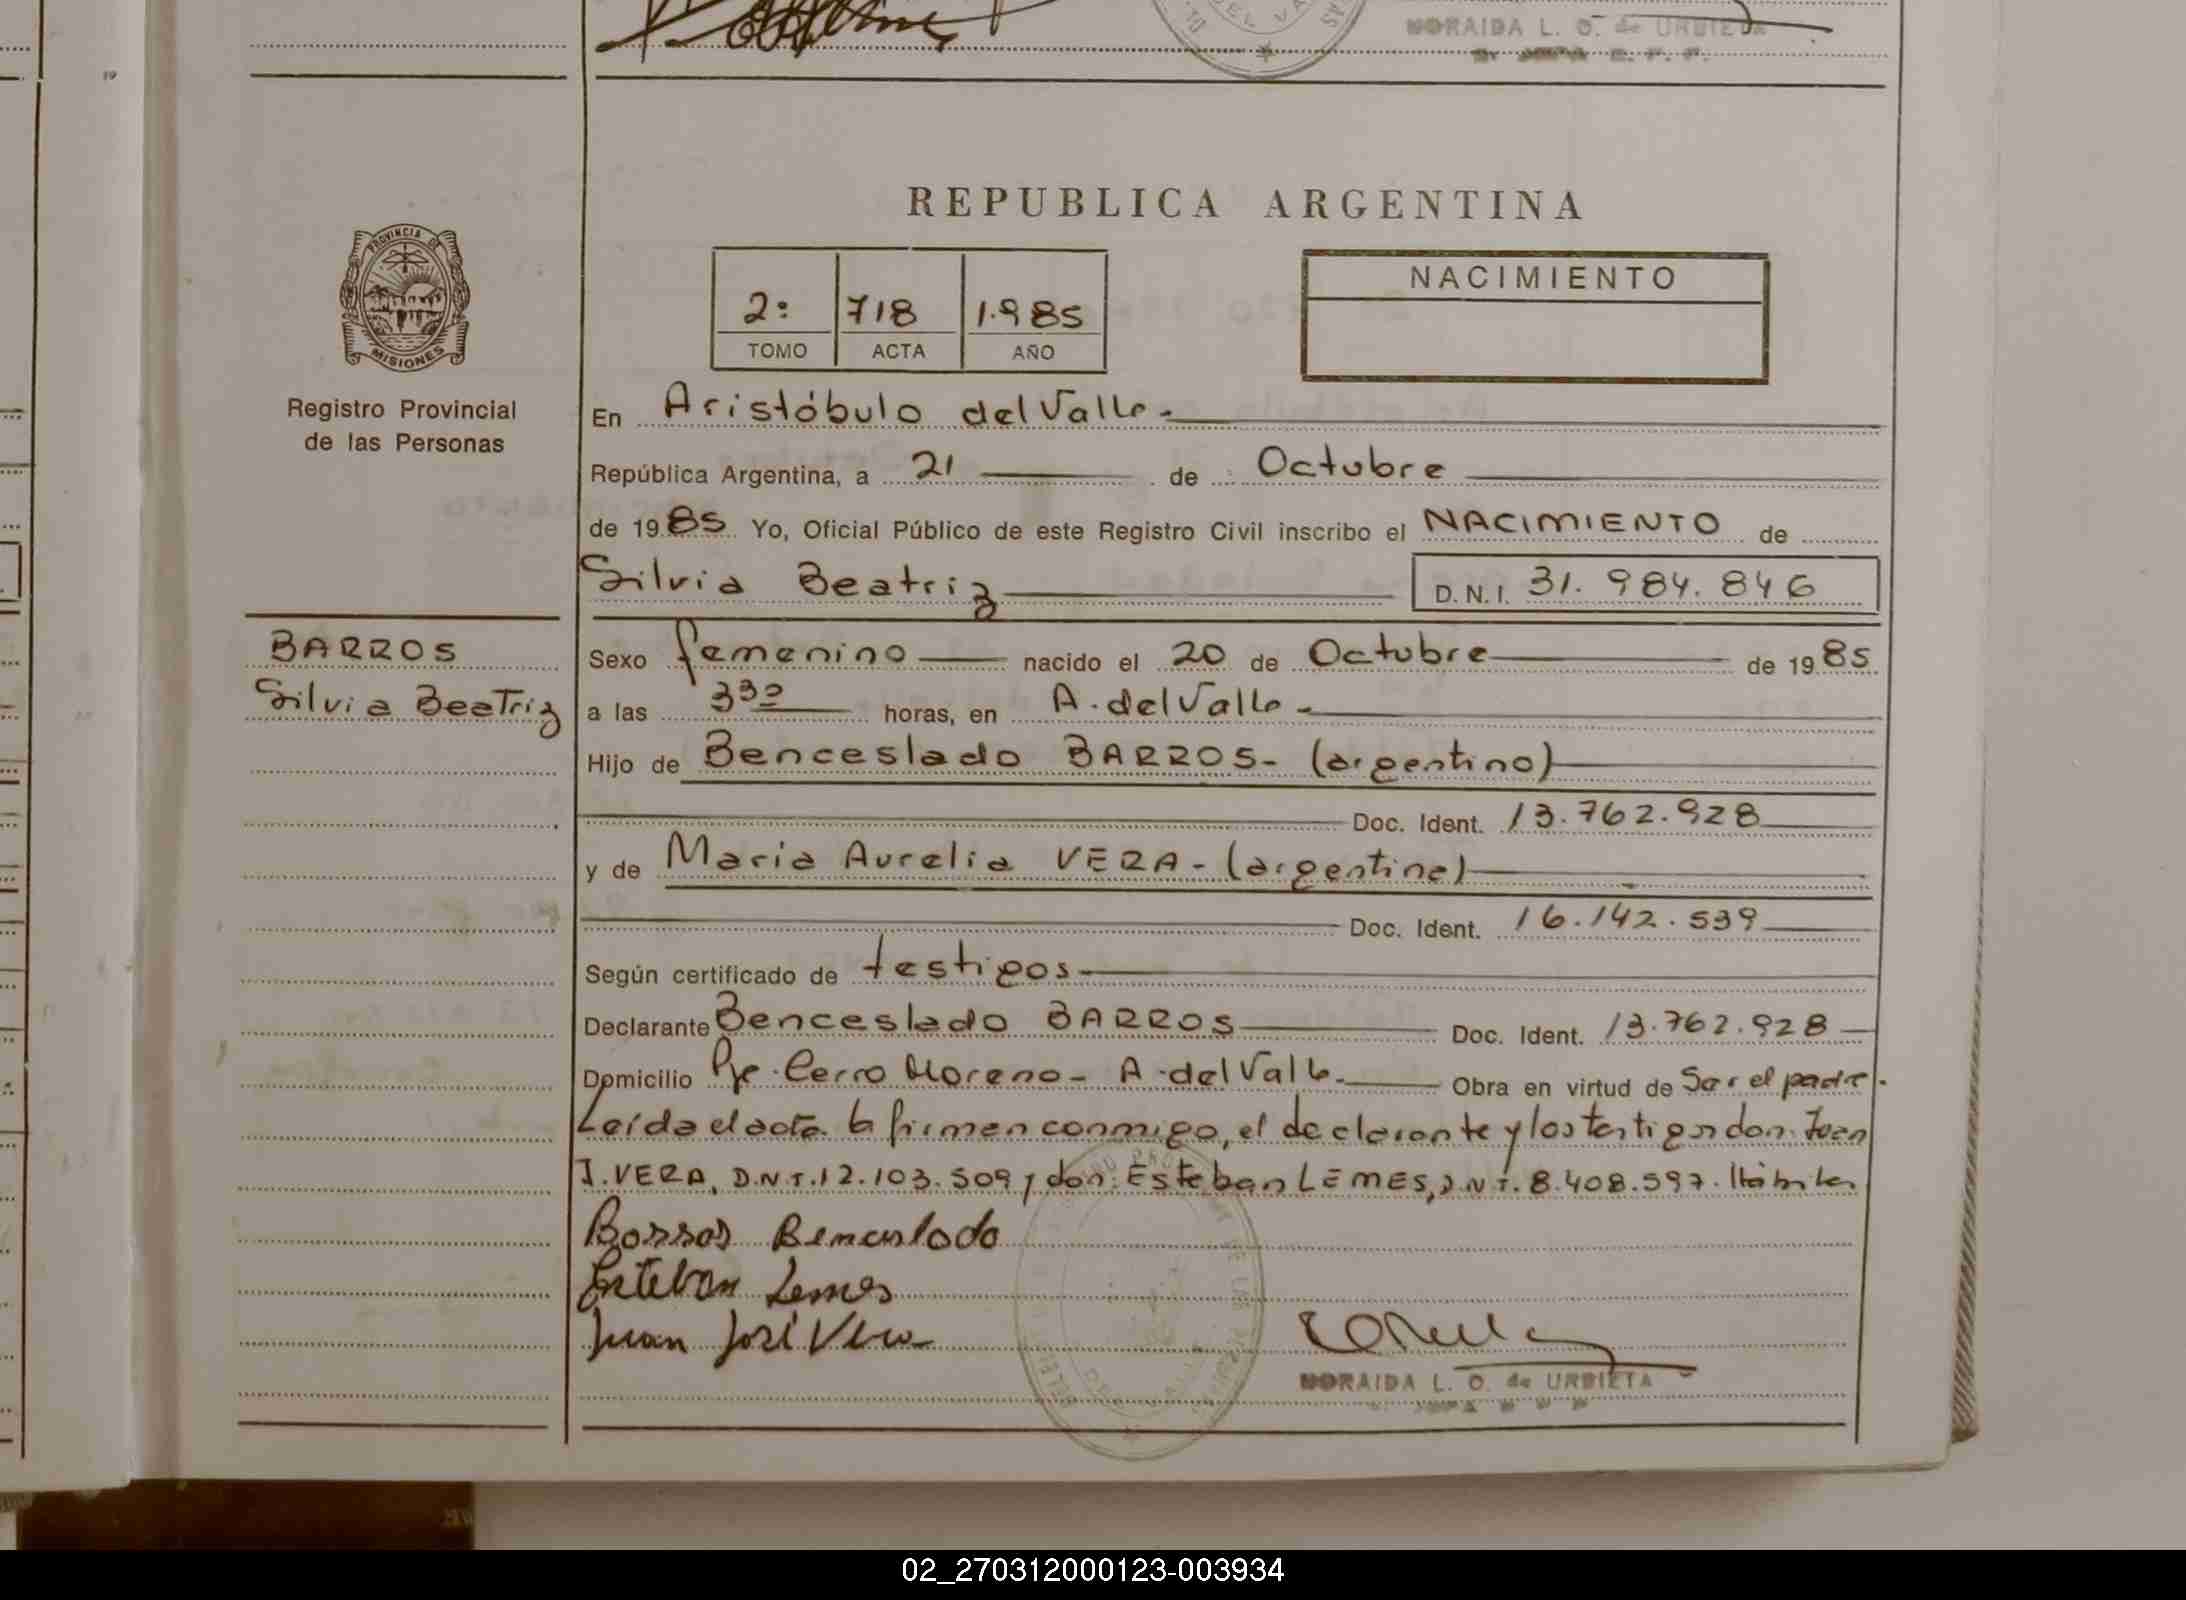 NORAIDA L. O. de URBIETA
REPUBLICA ARGENTINA
PROVINCIA DE
MISIONES
Registro Provincial
de las Personas
2: 718 1.985
TOMO ACTA AÑO
NACIMIENTO
En Aristóbulo del Valle.
República Argentina, a 21 de Octubre
de 1985 Yo, Oficial Público de este Registro Civil inscribo el NACIMIENTO de
Silvia Beatriz D.N.I. 31.984.846
BARROS
Silvia Beatriz
Sexo femenino nacido el 20 de Octubre de 1985
a las 3³⁰ horas, en A. del Valle.
Hijo de Benceslado BARROS- (argentino)
Doc. Ident. 13.762.928
y de Maria Aurelia VERA - (argentina)
Doc. Ident. 16.142.539
Según certificado de testigos
Declarante Benceslado BARROS Doc. Ident. 13.762.928
Domicilio Pje. Cerro Moreno - A. del Valle. Obra en virtud de Ser el padre.
Leída el acta la firman conmigo, el declarante y los testigos don: Juan
J. VERA, D.N.I. 12.103.509 y don: Esteban LEMES, D.N.I. 8.408.597. Hábiles
Barros Benceslado
Esteban Lemes
Juan José Vera
NORAIDA L. O. de URBIETA
02_270312000123-003934